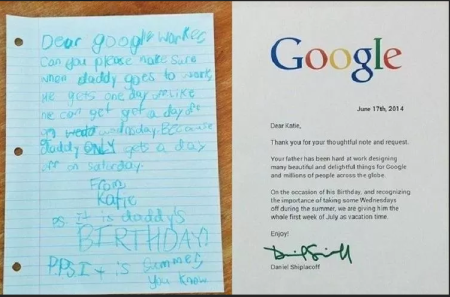 Dear google worker
Can you please make sure
when daddy goes to work,
he gets one day off. Like
he can get get a day off
on wedd wednesday. Because
daddy ONLY gets a day
off on saturday.
From,
Katie
PS. It is daddy's
BIRTHDAY!
PPS It is summer,
you know
Google
June 17th, 2014
Dear Katie,
Thank you for your thoughtful note and request.
Your father has been hard at work designing
many beautiful and delightful things for Google
and millions of people across the globe.
On the occasion of his Birthday, and recognizing
the importance of taking some Wednesdays
off during the summer, we are giving him the
whole first week of July as vacation time.
Enjoy!
Daniel Shiplacoff